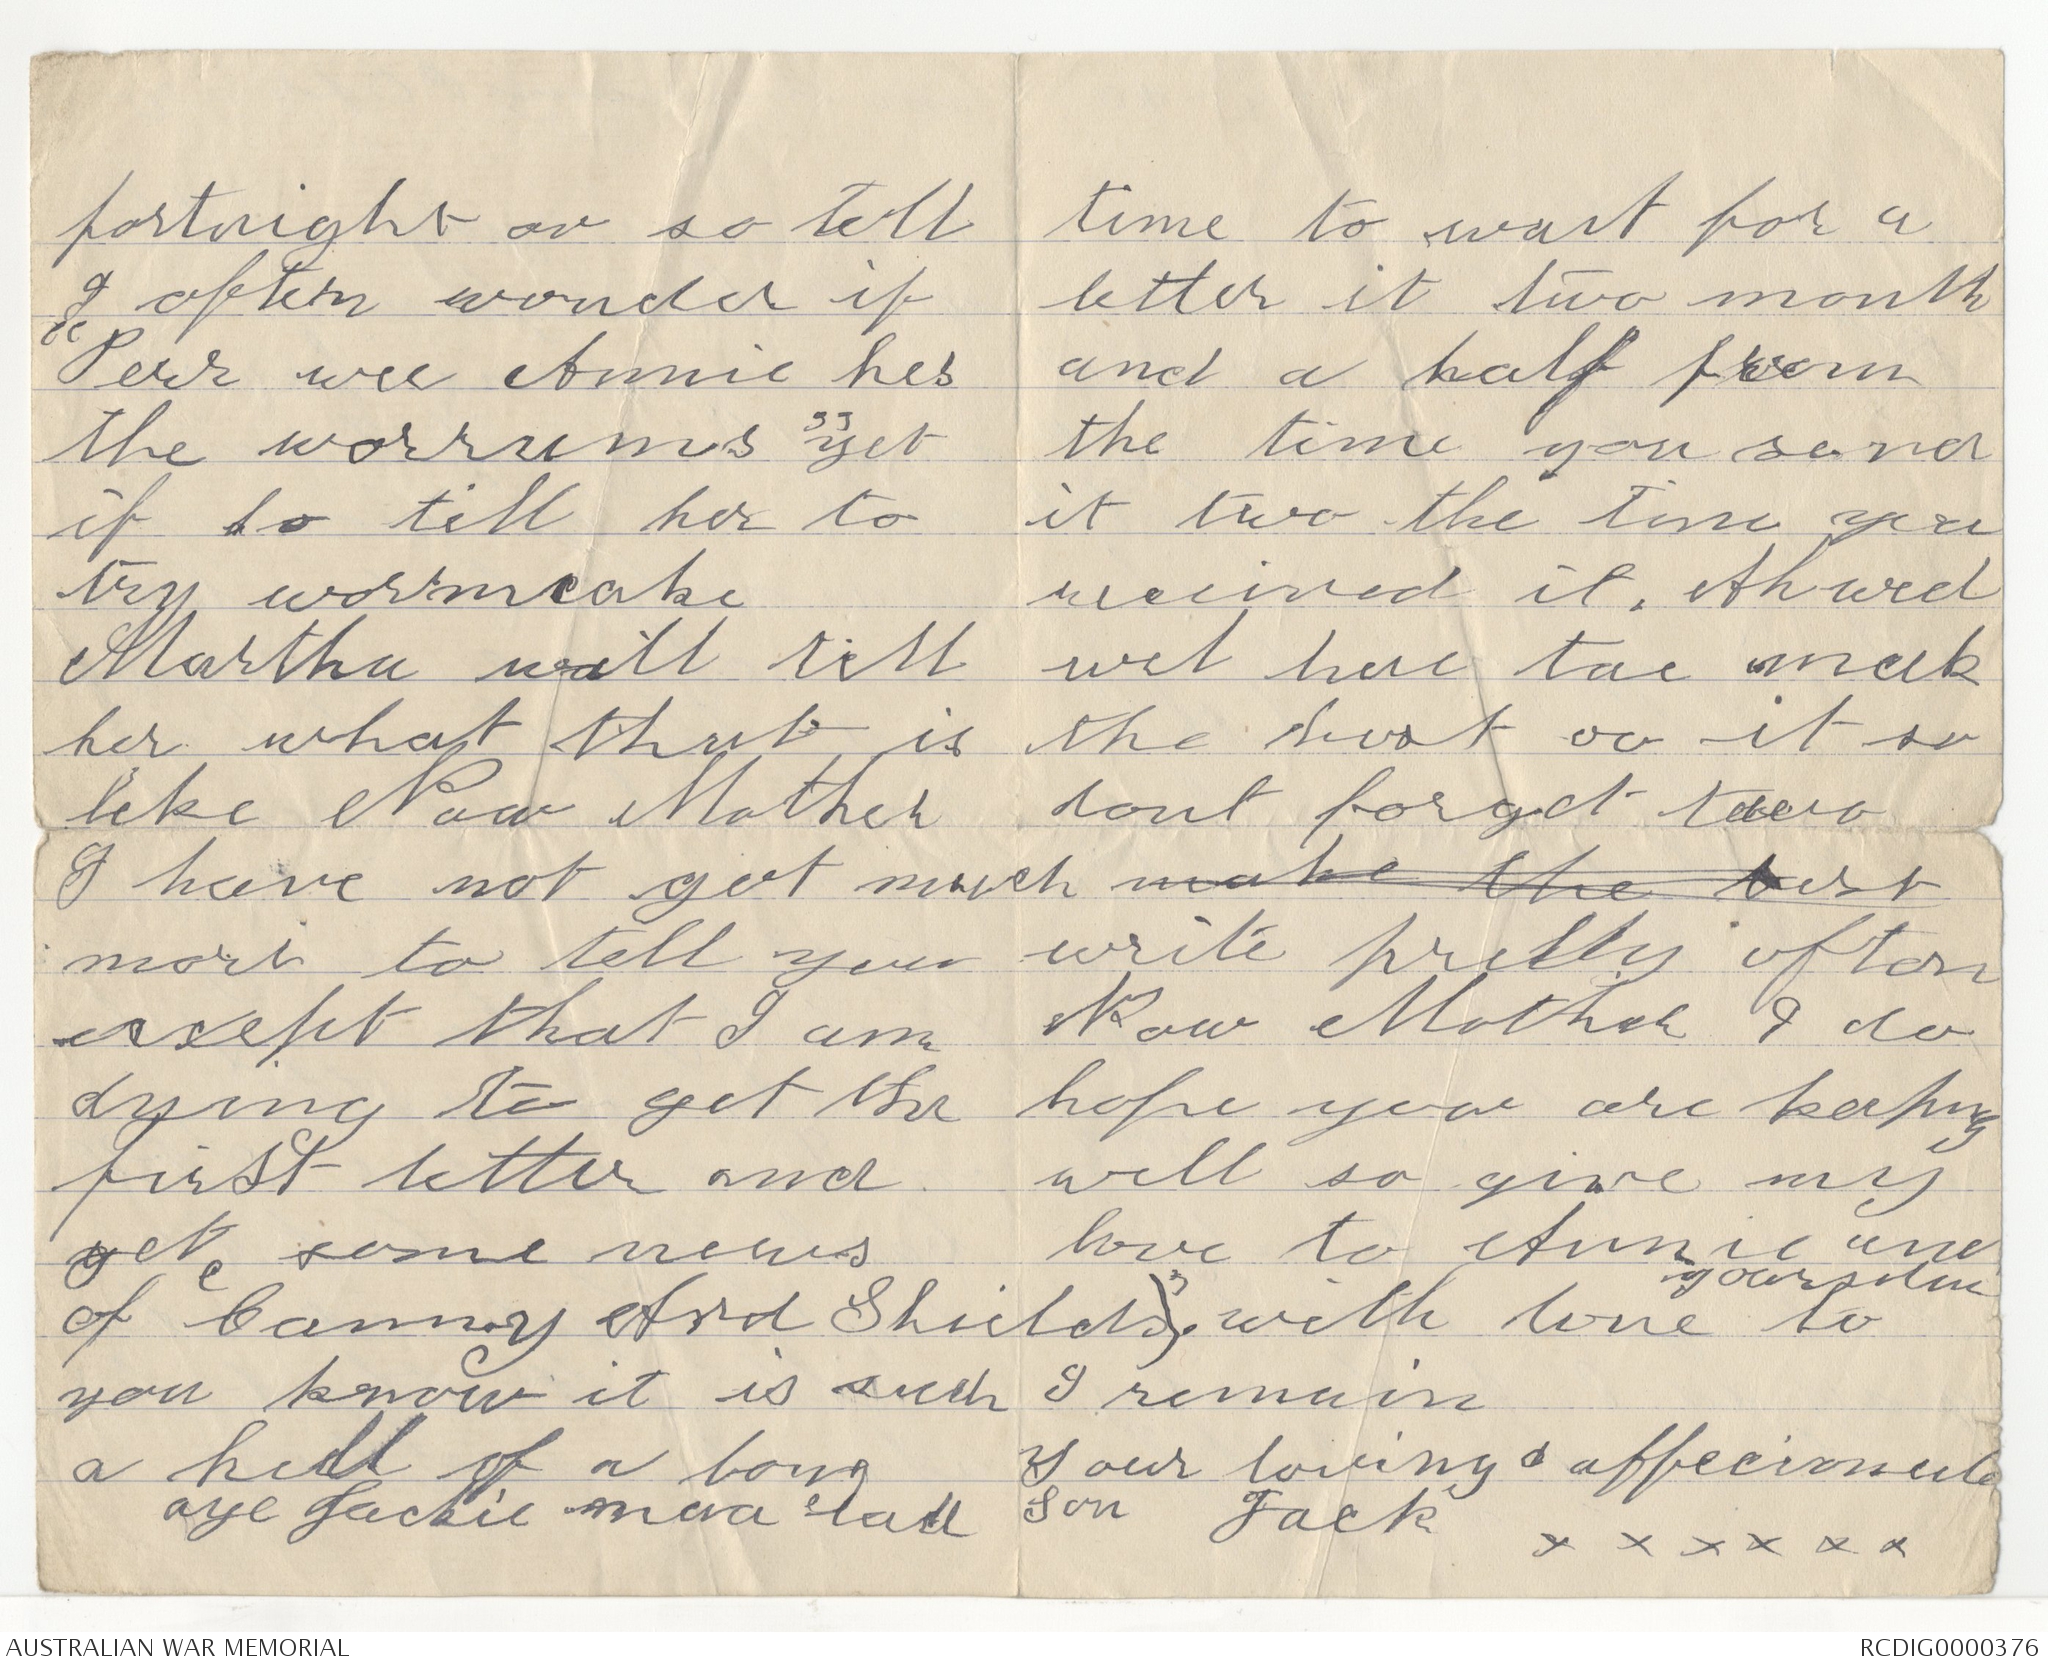 fortnight or so tell
I often wonder if
"Perr wee Annie hes
the worrums" yet
if so till her to
try wormcake
Martha will till
her what that is
like Now Mother
I have not got much
more to tell you
except that I am
dying to get the
first letter and
get some news
of "Canny Ard Shields"
you know it is such
a hell of a long
aye Jackie mea lad
time to wait for a
letter it two month
and a half from
the time you send
it two the time you
received it. Ah wed
wel have tae mak
the best oo it so
dont forget two
make the best
write pretty often
Now Mother I do
hope your are keeping
well so give my
love to Annie and
yourselve
with love to
I remain
Your loving & affecionate
Son Jack
x x x x x x
AUSTRALIAN WAR MEMORIAL
RCDIG0000376